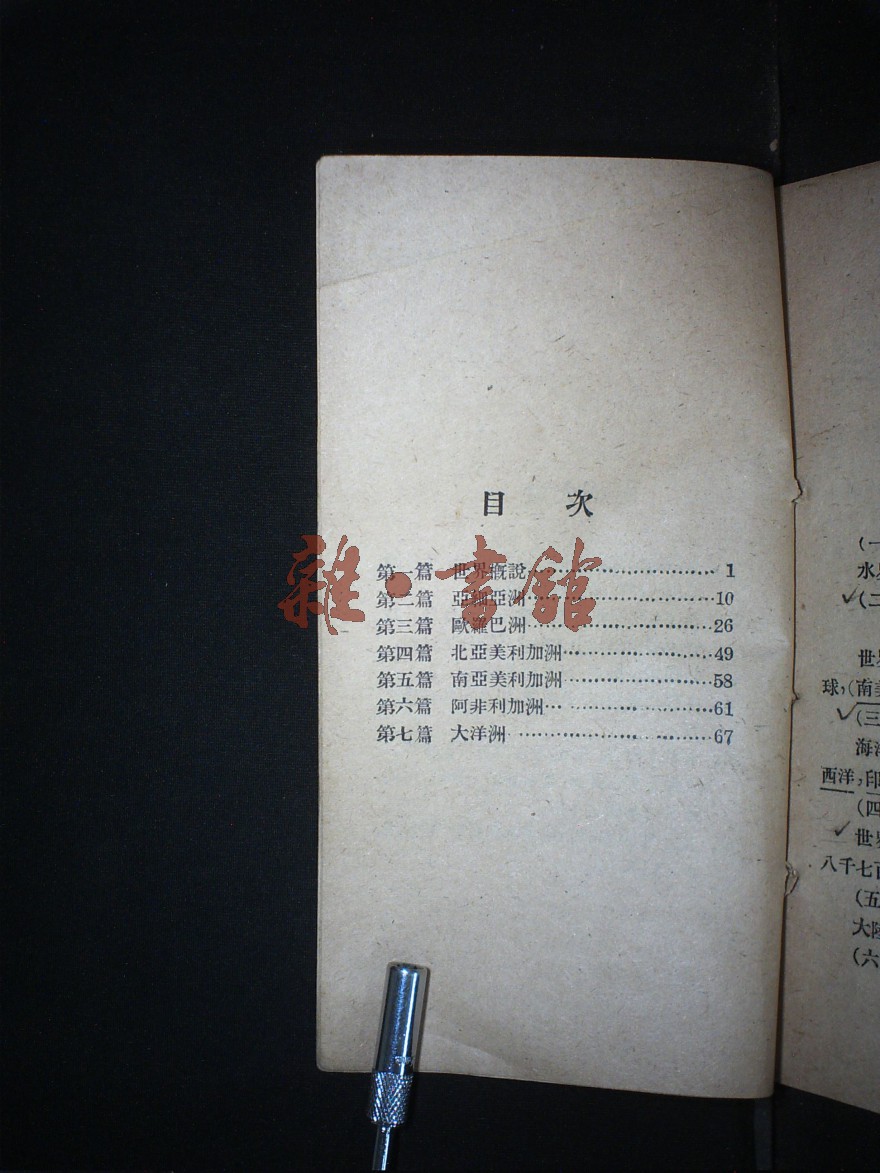 目次
第一篇 世界概說……………………1
第二篇 亞細亞洲……………………10
第三篇 歐羅巴洲……………………26
第四篇 北亞美利加洲………………49
第五篇 南亞美利加洲………………58
第六篇 阿非利加洲…………………61
第七篇 大洋洲………………………67
雜·書館
(一
水
✓(二
世界
球,(南美
✓(三
海洋
西洋,印
(四
✓世界
八千七百
(五
大陸
(六